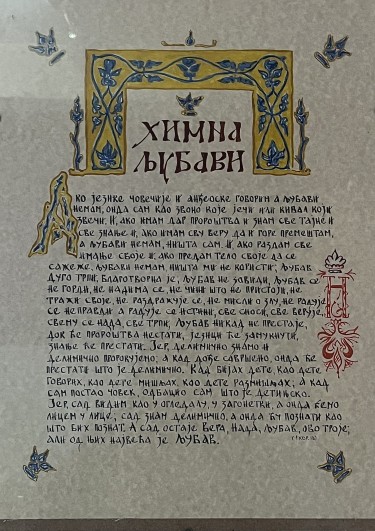 ХИМНА
ЉУБАВИ
АКО ЈЕЗИКЕ ЧОВЕЧИЈЕ И АНЂЕОСКЕ ГОВОРИМ А ЉУБАВИ
НЕМАМ, ОНДА САМ КАО ЗВОНО КОЈЕ ЈЕЧИ ИЛИ КИМВАЛ КОЈИ
ЗВЕЧИ. И, АКО ИМАМ ДАР ПРОРОШТВА И ЗНАМ СВЕ ТАЈНЕ И
СВЕ ЗНАЊЕ И, АКО ИМАМ СВУ ВЕРУ ДА И ГОРЕ ПРЕМЕШТАМ,
А ЉУБАВИ НЕМАМ, НИШТА САМ. И АКО РАЗДАМ СВЕ
ИМАЊЕ СВОЈЕ И, АКО ПРЕДАМ ТЕЛО СВОЈЕ ДА СЕ
САЖЕЖЕ, ЉУБАВИ НЕМАМ НИШТА МИ НЕ КОРИСТИ. ЉУБАВ
ДУГО ТРПИ, БЛАГОТВОРНА ЈЕ, ЉУБАВ НЕ ЗАВИДИ, ЉУБАВ СЕ
НЕ ГОРДИ, НЕ НАДИМА СЕ, НЕ ЧИНИ ШТО НЕ ПРИСТОЈИ, НЕ
ТРАЖИ СВОЈЕ, НЕ РАЗДРАЖУЈЕ СЕ, НЕ МИСЛИ О ЗЛУ, НЕ РАДУЈЕ
СЕ НЕПРАВДИ А РАДУЈЕ СЕ ИСТИНИ, СВЕ СНОСИ, СВЕ ВЕРУЈЕ,
СВЕМУ СЕ НАДА, СВЕ ТРПИ. ЉУБАВ НИКАД НЕ ПРЕСТАЈЕ,
ДОК ЋЕ ПРОРОШТВА НЕСТАТИ, ЈЕЗИЦИ ЋЕ ЗАМУКНУТИ,
ЗНАЊЕ ЋЕ ПРЕСТАТИ. ЈЕР, ДЕЛИМИЧНО ЗНАМО И
ДЕЛИМИЧНО ПРОРОКУЈЕМО, А КАД ДОЂЕ САВРШЕНО, ОНДА ЋЕ
ПРЕСТАТИ ШТО ЈЕ ДЕЛИМИЧНО. КАД БИЈАХ ДЕТЕ, КАО ДЕТЕ
ГОВОРИХ, КАО ДЕТЕ МИШЉАХ, КАО ДЕТЕ РАЗМИШЉАХ, А КАД
САМ ПОСТАО ЧОВЕК, ОДБАЦИО САМ ШТО ЈЕ ДЕТИЊСКО.
ЈЕР, САД ВИДИМ КАО У ОГЛЕДАЛУ, У ЗАГОНЕТКИ, А ОНДА ЋЕМО
ЛИЦЕМ У ЛИЦЕ; САД ЗНАМ ДЕЛИМИЧНО, А ОНДА ЋУ ПОЗНАТИ КАО
ШТО БИХ ПОЗНАТ. А САД ОСТАЈЕ ВЕРА, НАДА, ЉУБАВ, ОВО ТРОЈЕ;
АЛИ ОД ЊИХ НАЈВЕЋА ЈЕ ЉУБАВ.